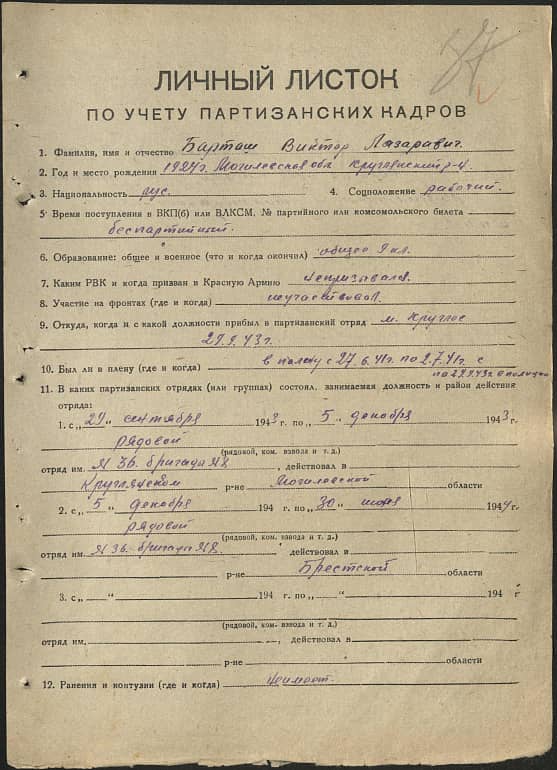 ЛИЧНЫЙ ЛИСТОК
ПО УЧЕТУ ПАРТИЗАНСКИХ КАДРОВ
1. Фамилия, имя и отчество Барташ Виктор Лазаравич.
2. Год и место рождения 1924г. Могилевская обл. Круглянский р-н
3. Национальность рус. 4. Соцположение рабочий.
5 Время поступления в ВКП(б) или ВЛКСМ, № партийного или комсомольского билета
беспартийный.
6. Образование: общее и военное (что и когда окончил) общее 9 кл.
7. Каким РВК и когда призван в Красную Армию непризывался.
8. Участие на фронтах (где и когда) неучаствовал.
9. Откуда, когда и с какой должности прибыл в партизанский отряд м. Круглое
29.9.43г.
10. Был ли в плену (где и когда) в плену с 27.6.41г. по 2.7.41г. с
по 29.9.43г. в полиции
11. В каких партизанских отрядах (или группах) состоял, занимаемая должность и район действия
отряда:
1. с „29“ сентября 1943 г. по „5“ декабря 1943г.
рядовой
(рядовой, ком. взвода и т. д.)
отряд им. № 36. бригада №8, действовал в
Круглянском р-не Могилевской области
2. с „5“ декабря 194 г. по „30“ 1944г.
рядовой
(рядовой, ком. взвода и т. д.)
отряд им. № 36. бригада №8. действовал в
р-не Брестской области
3. с „ “ 194 г. по „ “ 194 г
(рядовой, ком. взвода и т. д.)
отряд им. , действовал в
р-не области
12. Ранения и контузии (где и когда) неимеет.